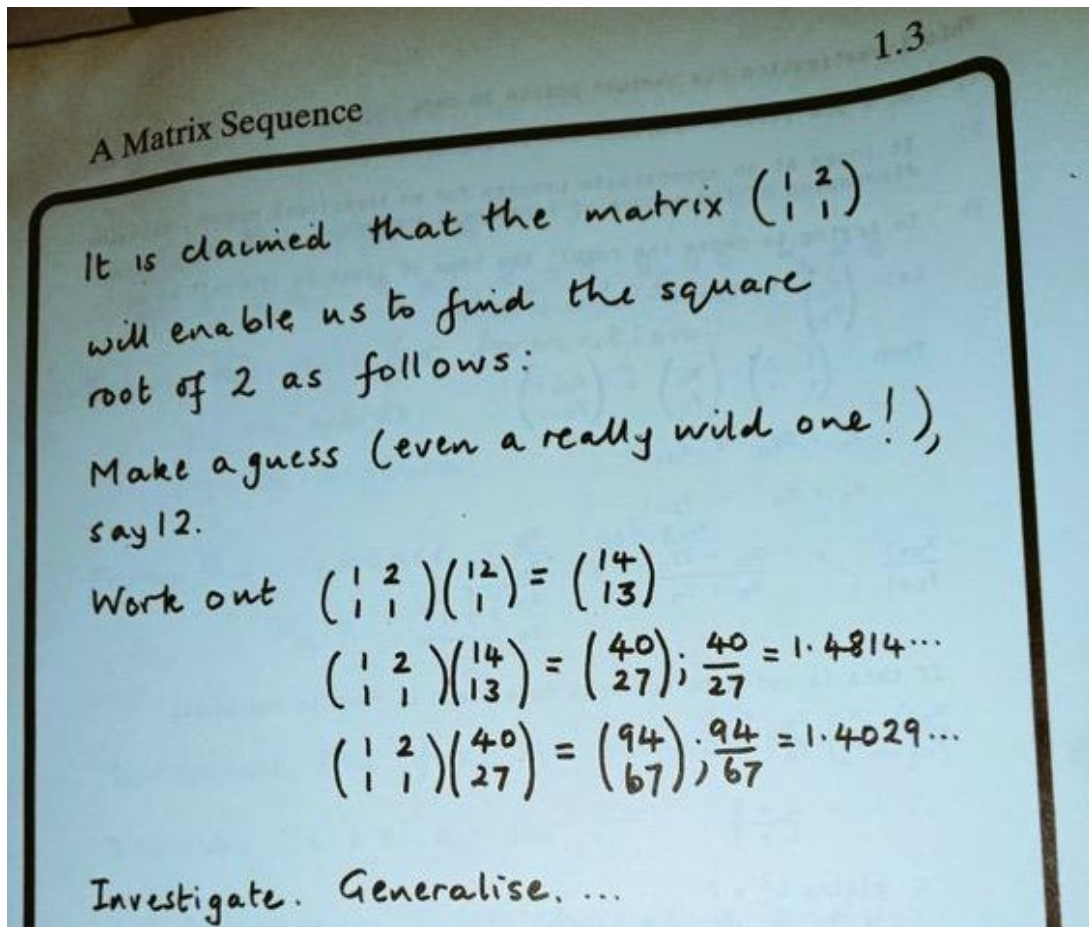 1.3
A Matrix Sequence
It is claimed that the matrix (1 2
1 1)
will enable us to find the square
root of 2 as follows:
Make a guess (even a really wild one!),
say 12.
Work out (1 2
1 1)(12
1) = (14
13)
(1 2
1 1)(14
13) = (40
27); 40/27 = 1.4814...
(1 2
1 1)(40
27) = (94
67); 94/67 = 1.4029...
Investigate. Generalise. ...